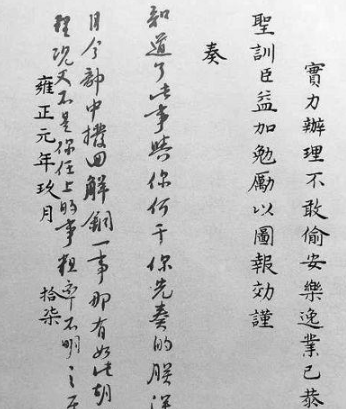 實力辦理不敢偷安樂逸業已恭
聖訓臣益加勉勵以圖報効謹
奏
知道了此事與你何干你先奏的朕深
目今部中撥回解銅一事那有如此胡
理況又不是你任上的事粗率不明之至
雍正元年玖月 拾柒